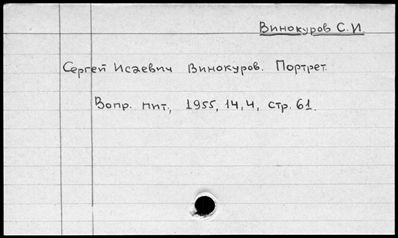 Винокуров С. И.
Сергей Исаевич Винокуров. Портрет.
Вопр. пит., 1955, 14, 4, стр. 61.